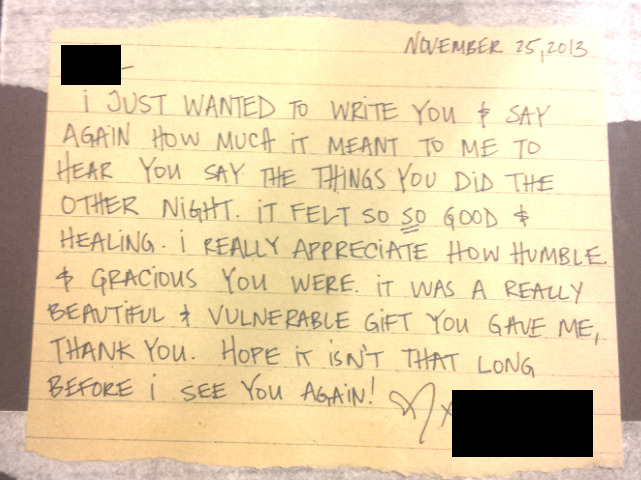 NOVEMBER 25, 2013
–
i JUST WANTED TO WRITE YOU & SAY
AGAIN HOW MUCH iT MEANT TO ME TO
HEAR YOU SAY THE THINGS YOU DiD THE
OTHER NiGHT. iT FELT SO SO GOOD &
HEALING. i REALLY APPRECIATE HOW HUMBLE
& GRACIOUS YOU WERE. iT WAS A REALLY
BEAUTiFUL & VULNERABLE GiFT YOU GAVE ME,
THANK YOU. HOPE iT iSN'T THAT LONG
BEFORE i SEE YOU AGAiN! ♡ x